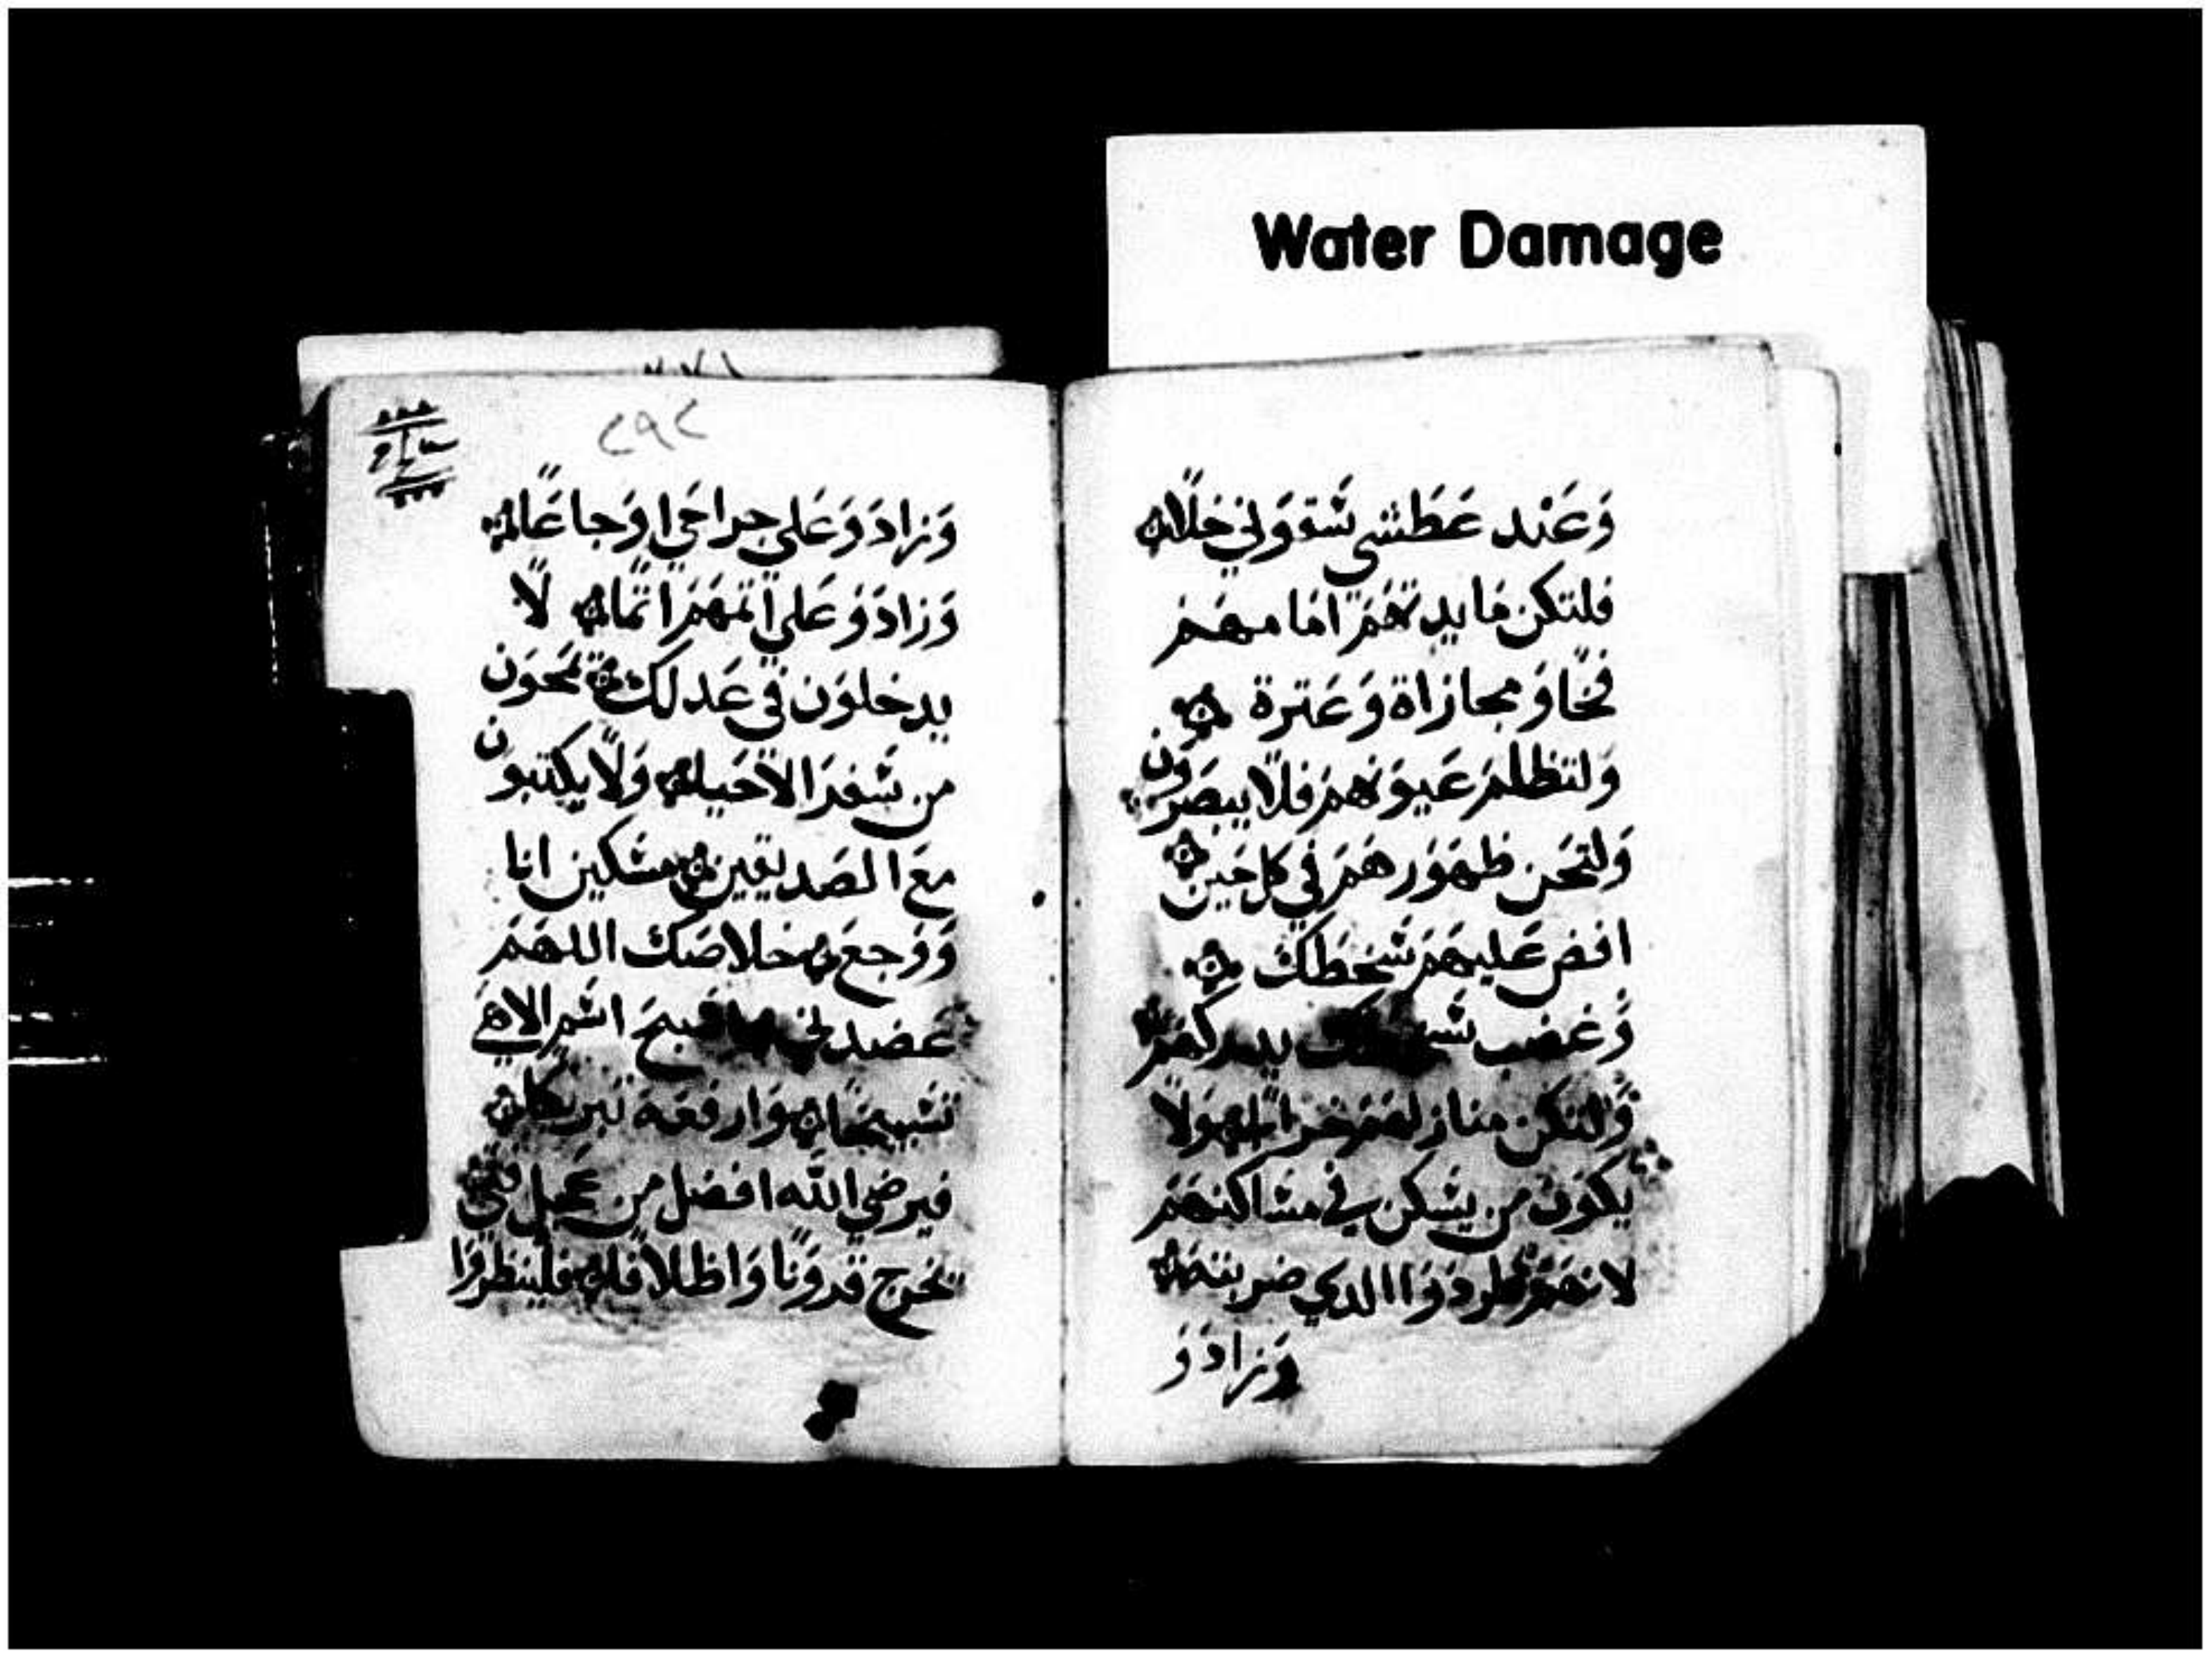 Water Damage
وَعَنْد عَطَشي سَقووَني خلًا
فلتكن مايدتهَمَ امامهَم
فخًا وَمجازاة وَعَترة
وَلتظلمَ عَيوَنهمَ فلا يبصَروَن
وَلتحَن ظهوَرهَمَ في كل حَين
افض عَليهمَ سَخطك
وَغضب يدركهمَ
وَلتكن منازلهمَ خرابًا وَلا
يكوَن من يسَكن في مسَاكنهَم
لانهَمَ طردوَا الدي ضربته
وَزادوَ
٢٩٢
وَزادوَ وَعَلي جراحَي اوَجاعًا
وَزادوَ وَعَلي اتمهَمَ اتمًا لا
يدخلوَن في عَدلك تمحوَن
من سَفرَ الاحَيا وَلا يكتبون
معَ الصَديقين مسَكين انا
وَوَجعَ خلاصَك اللهمَ
عَضدني اسَبحَ اسَم الاهَي
تسَبيحًا وَارفعَه تبريكا
فيرضي الله افضل من عَجل فتي
تخرج قروَنا وَاظلافا فلينظروَا